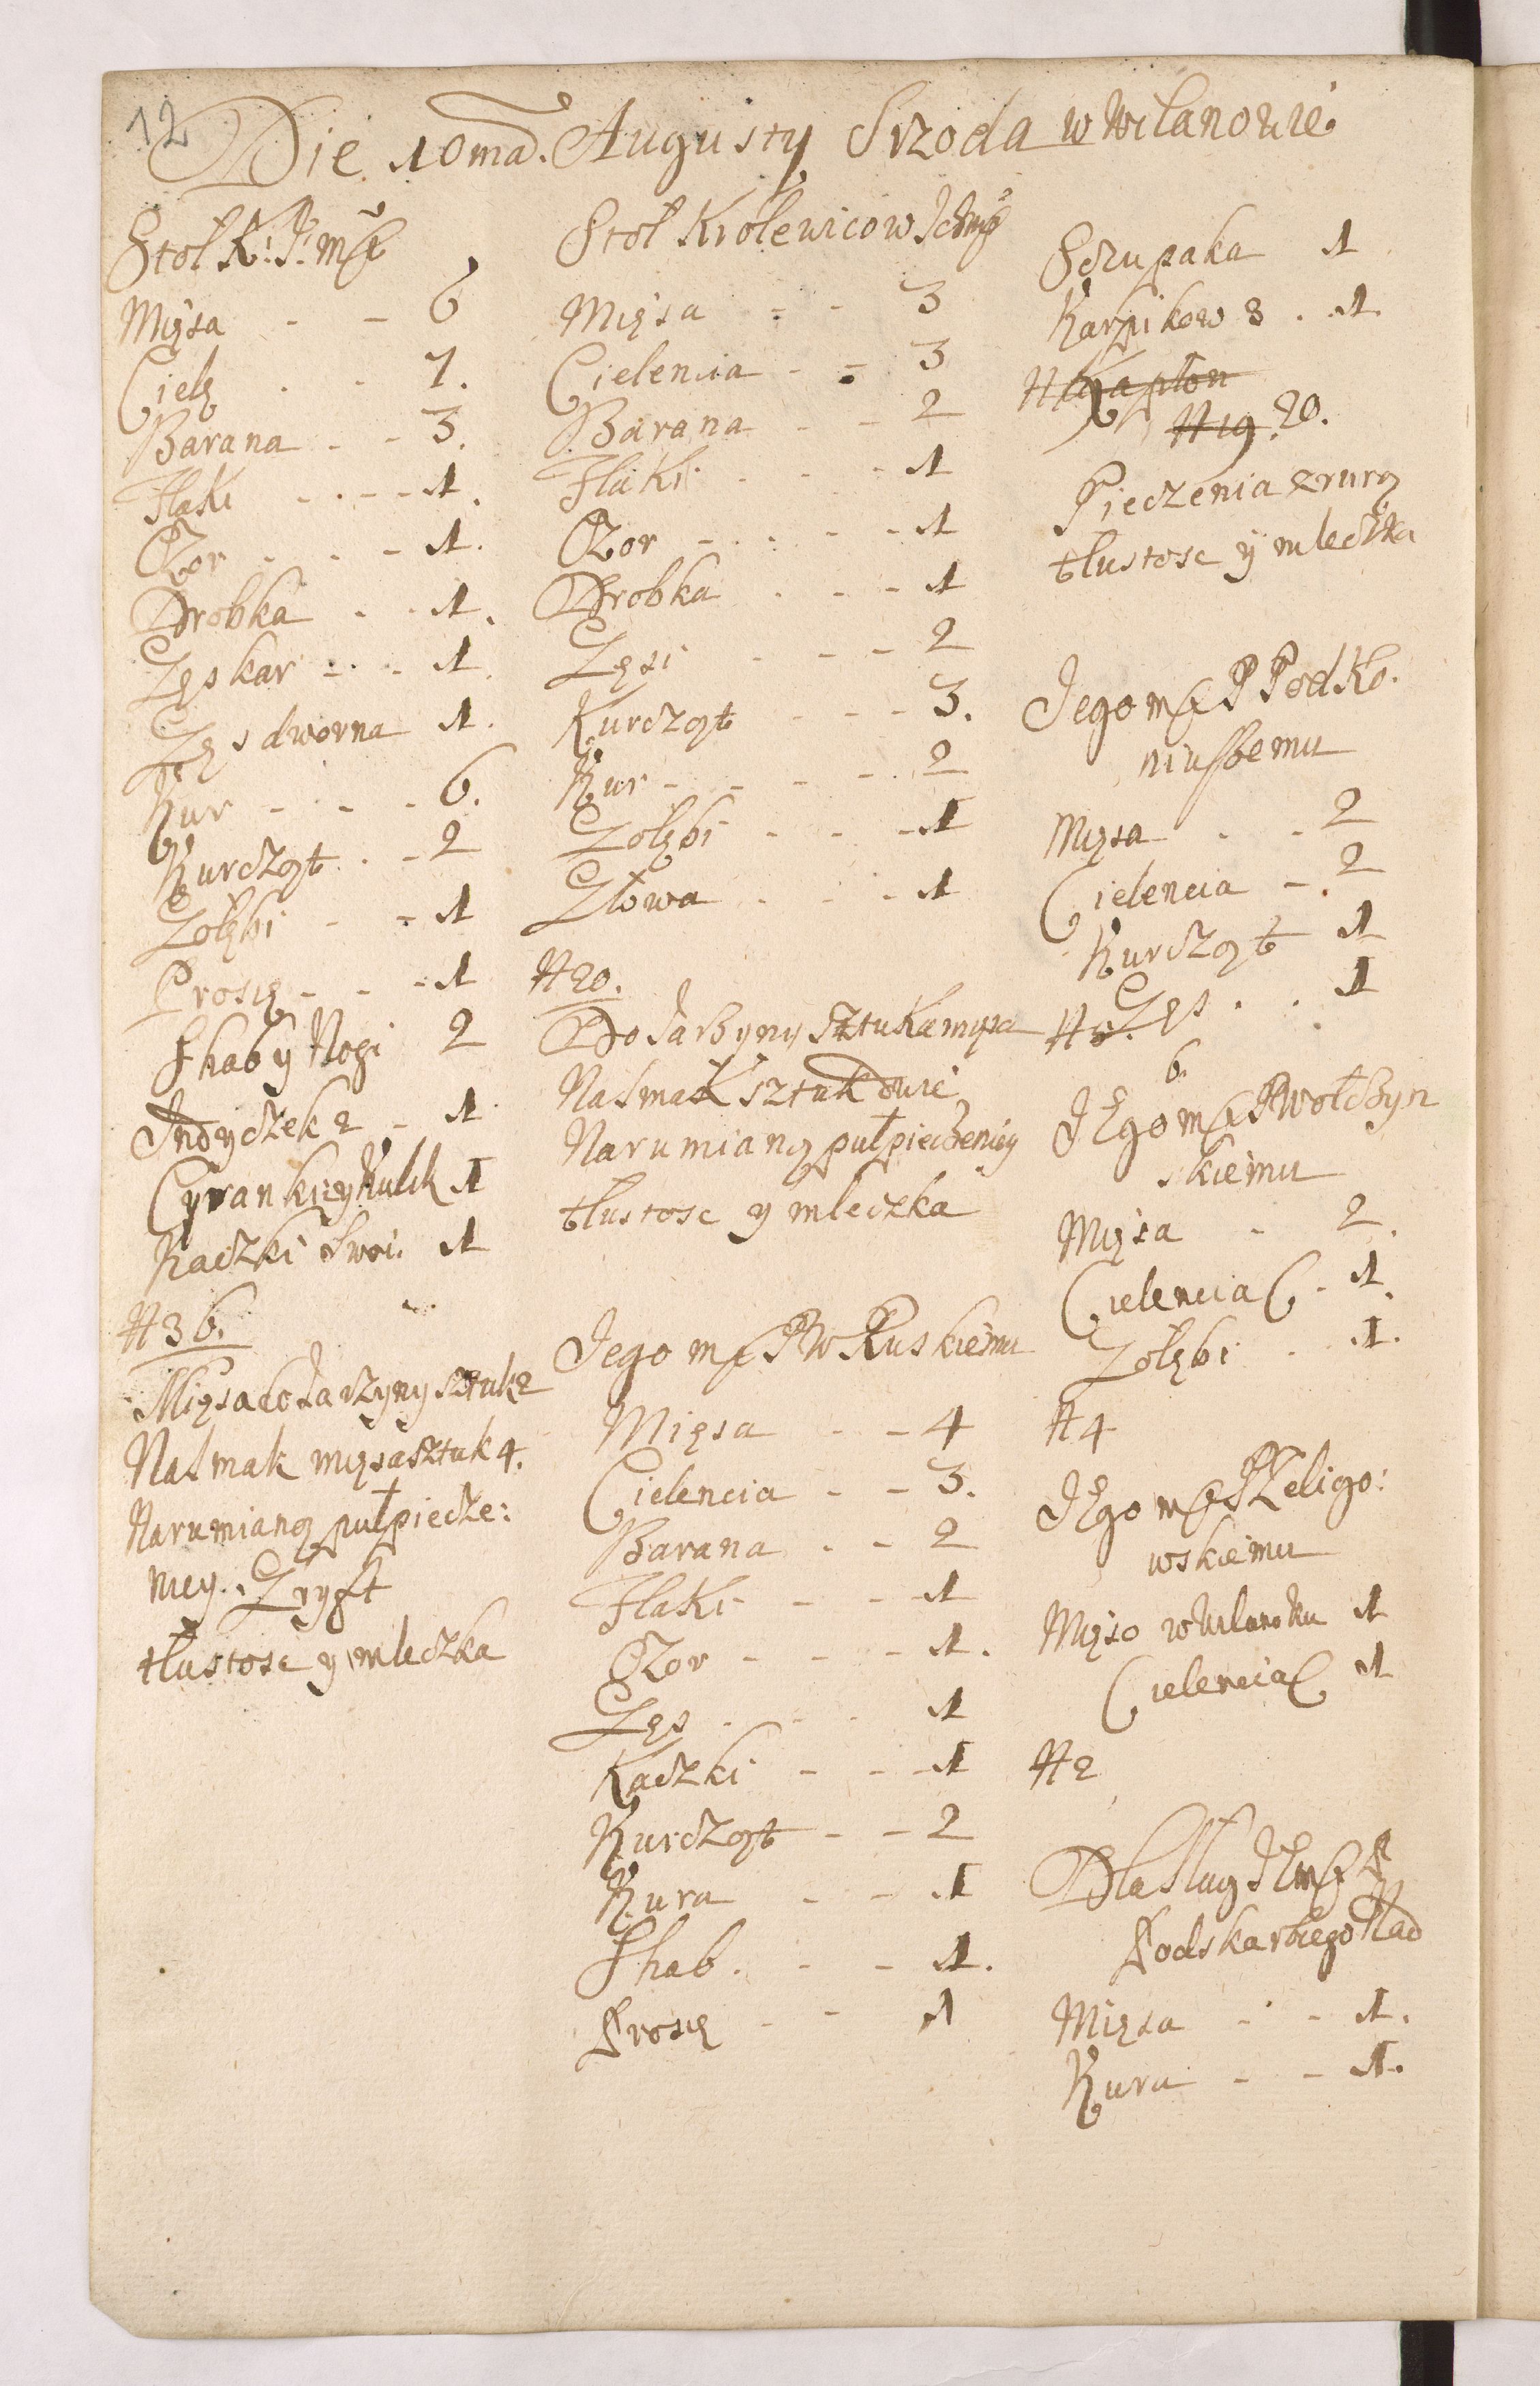 12
Die 10ma. Augusty Srzoda w Wilanowie
Stoł K: J: mſci
Mięsa - - 6
Cielę - - 7.
Barana - - 3.
Flaki - - - 1.
Ozor - - - 1.
Drobka - - 1.
Zęs kar - - - 1.
Zęs dworna 1.
Kur - - - 6.
Kurcząt - - 2
Gołębi - - 1
Prosię - - - 1
Shab y Nogi 2
Indyczek 2 - 1
Cyranki y Kulik 1
Kaczki Swoi. 1
# 36.
Mięsa do farszyny sztuk 2
Na smak mięsa sztuk 4.
Na rumianą pułpiecze:
niey. Gryst
tłustosc y mleczka
Stoł Krolewicow Ichmſ
Mięsa - - 3
Cielencia - - 3
Barana - - 2
Flaki - - - 1
Ozor - - - - 1
Drobka - - - 1
Gęsi - - - 2
Kurcząt - - - 3.
Kur - - - - 2
Gołębi - - - 1
Głowa - - - 1
# 20.
Do farszyny sztuka mięsa
Na smak sztuk dwie
Na rumianą pułpieczeniey
tłustosc y mleczka
Jego mſc P W Ruskiemu
Mięsa - - 4
Cielencia - - 3.
Barana - - 2
Flaki - - - 1
Ozor - - - 1.
Gęs - - - 1
Kaczki - - - 1
Kurcząt - - 2
Kura - - 1
Shab. - - 1.
Prosię - - 1
Sczupaka 1
Karpikow 3 . 1
# Kapłon
# 19. 20.
Pieczenia z rurą
tłustosc y mleczka
Jego mſc P Podko.
niuszemu
Mięsa - - 2
Cielencia - . 2
Kurcząt 1
Gęs . . 1
# 5.
6.
JEgo mſc P Wołczyn
skiemu
Mięsa - 2.
Cielencia C - 1.
Gołębi . . 1.
# 4
JEgo mſc P Zeligo:
wskiemu
Mięso w Wilanowu 1
Cielencia C 1
# 2
Dla Sług JEmſc P
Podskarbiego Nad
Mięsa - - 1.
Kura - - 1.